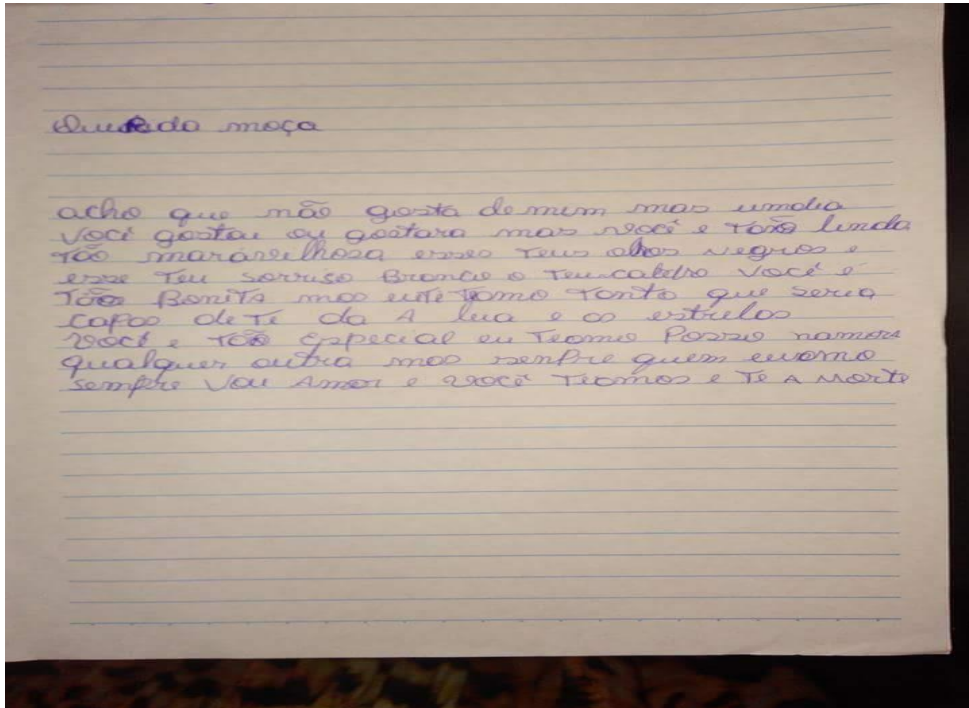 Querida moça
acho que não gosta de mim mas um dia
Você gostou ou gostara mas você e tão linda
Tão maravilhosa esses Teus olhos Negros e
esse Teu sorriso Branco o Teu cabelro Você é
Tão Bonita mas eu te amo Tanto que seria
capas de Te da A lua e as estrelas
você e Tão especial eu Teamo Posso namora
qualquer outra mas senpre quem eu amo
sempre Vou Amar e você Teamos e Te A Morte